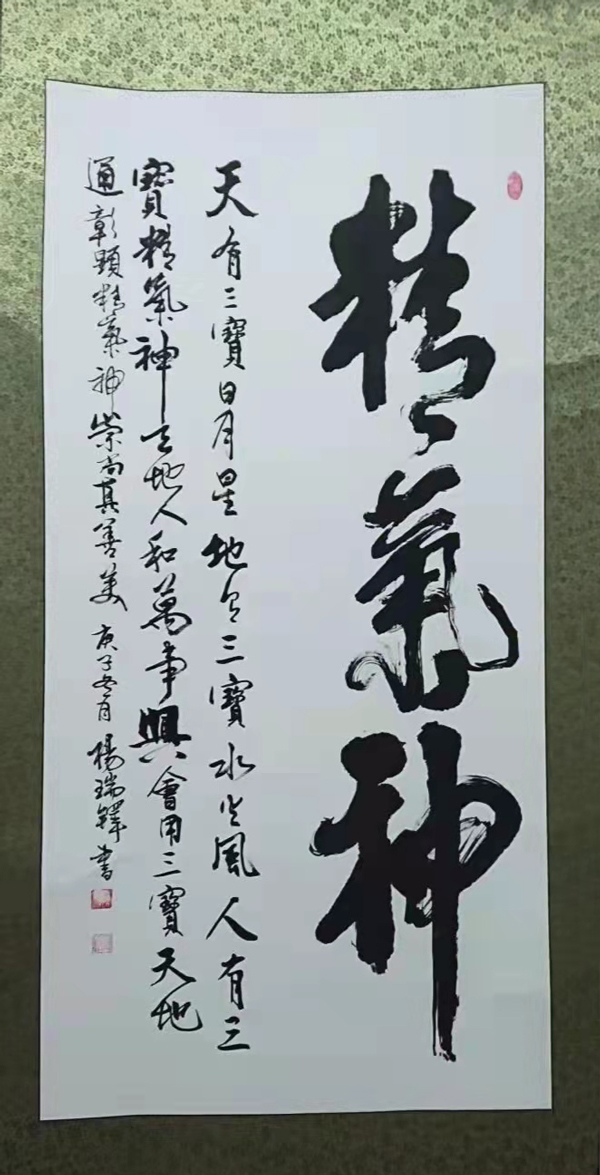 精氣神
天有三寶日月星地有三寶水火風人有三
寶精氣神天地人和萬事興會用三寶天地
通彰顯精氣神崇尚真善美 庚子冬月 楊瑞鐸書